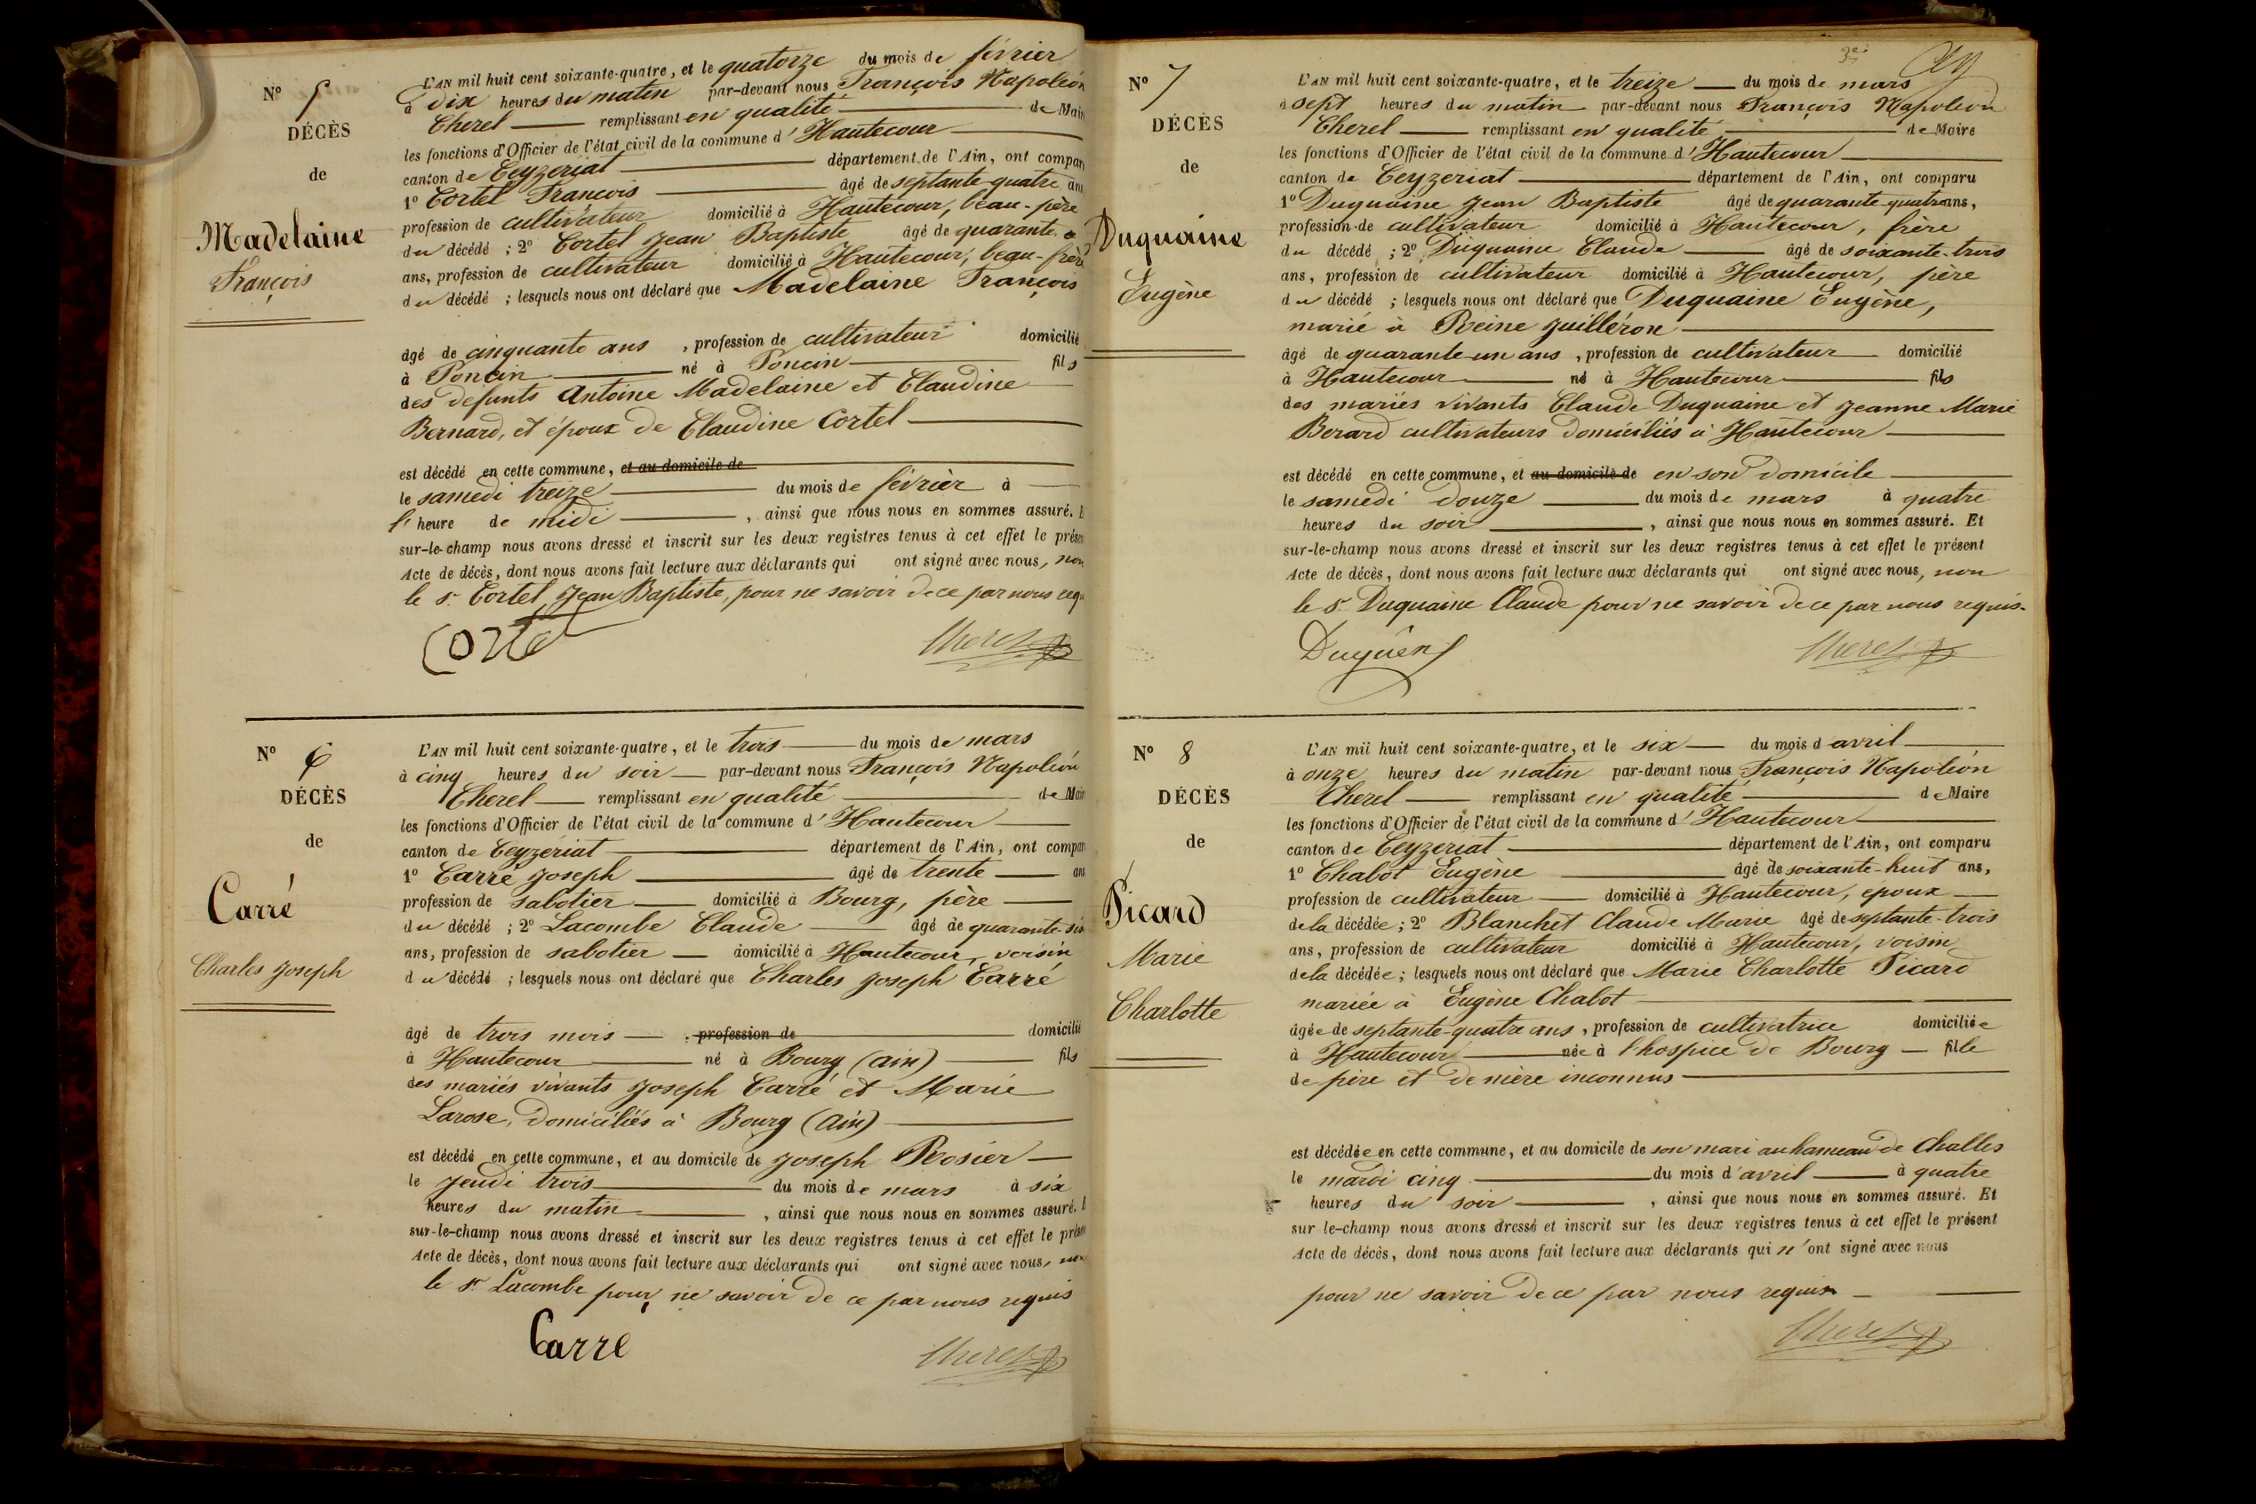 Nº 5
DÉCÈS
de
Madelaine
François
L'AN mil huit cent soixante-quatre, et le quatorze du mois de février
à dix heures du matin par-devant nous François Napoléon
Cherel remplissant en qualité de Maire
les fonctions d'Officier de l'état civil de la commune d'Hautecour
canton de Ceyzeriat département de l'Ain, ont compar
1º Cortel François âgé de septante quatre ans
profession de cultivateur domicilié à Hautecour, beau-père
du décédé ; 2º Cortel Jean Baptiste âgé de quarante
ans, profession de cultivateur domicilié à Hautecour, beau-frère
du décédé ; lesquels nous ont déclaré que Madelaine François
âgé de cinquante ans , profession de cultivateur domicilié
à Poncin né à Poncin fils
des defunts Antoine Madelaine et Claudine
Bernard, et époux de Claudine Cortel
est décédé en cette commune, et au domicile de
le samedi treize du mois de février à
l'heure de midi , ainsi que nous nous en sommes assuré. E
sur-le-champ nous avons dressé et inscrit sur les deux registres tenus à cet effet le présen
Acte de décès, dont nous avons fait lecture aux déclarants qui ont signé avec nous, non
le sr. Cortel Jean Baptiste, pour ne savoir de ce par nous requ
Cortel Cherel
Nº 6
DÉCÈS
de
Carré
Charles Joseph
L'AN mil huit cent soixante-quatre, et le trois du mois de mars
à cinq heures du soir par-devant nous François Napoléon
Cherel remplissant en qualité de Maire
les fonctions d'Officier de l'état civil de la commune d'Hautecour
canton de Ceyzeriat département de l'Ain, ont compar
1º Carré Joseph âgé de trente ans
profession de sabotier domicilié à Bourg, père
du décédé ; 2º Lacombe Claude âgé de quarante-six
ans, profession de sabotier domicilié à Hautecour, voisin
du décédé ; lesquels nous ont déclaré que Charles Joseph Carré
âgé de trois mois , profession de domicilié
à Hautecour né à Bourg (Ain) fils
des mariés vivants Joseph Carré et Marie
Larose, domiciliés à Bourg (Ain)
est décédé en cette commune, et au domicile de Joseph Rosier
le jeudi trois du mois de mars à six
heures du matin , ainsi que nous nous en sommes assuré. E
sur-le-champ nous avons dressé et inscrit sur les deux registres tenus à cet effet le présen
Acte de décès, dont nous avons fait lecture aux déclarants qui ont signé avec nous, non
le sr. Lacombe pour ne savoir de ce par nous requis
Carre Cherel
Nº 7
DÉCÈS
de
Duquaine
Eugène
L'AN mil huit cent soixante-quatre, et le treize du mois de mars
à sept heures du matin par-devant nous François Napoléon
Cherel remplissant en qualité de Maire
les fonctions d'Officier de l'état civil de la commune d'Hautecour
canton de Ceyzeriat département de l'Ain, ont comparu
1º Duquaine Jean Baptiste âgé de quarante quatre ans,
profession de cultivateur domicilié à Hautecour, frère
du décédé ; 2º Duquaine Claude âgé de soixante-trois
ans, profession de cultivateur domicilié à Hautecour, père
du décédé ; lesquels nous ont déclaré que Duquaine Eugène,
marié à Reine Juilléron
âgé de quarante-un ans , profession de cultivateur domicilié
à Hautecour né à Hautecour fils
des mariés vivants Claude Duquaine et Jeanne Marie
Berard cultivateurs domiciliés à Hautecour
est décédé en cette commune, et au domicile de en son domicile
le samedi douze du mois de mars à quatre
heures du soir , ainsi que nous nous en sommes assuré. Et
sur-le-champ nous avons dressé et inscrit sur les deux registres tenus à cet effet le présent
Acte de décès, dont nous avons fait lecture aux déclarants qui ont signé avec nous, non
le sr. Duquaine Claude pour ne savoir de ce par nous requis.
Cherel
Nº 8
DÉCÈS
de
Picard
Marie
Charlotte
L'AN mil huit cent soixante-quatre, et le six du mois d'avril
à onze heures du matin par-devant nous François Napoléon
Cherel remplissant en qualité de Maire
les fonctions d'Officier de l'état civil de la commune d'Hautecour
canton de Ceyzeriat département de l'Ain, ont comparu
1º Chabot Eugène âgé de soixante-huit ans,
profession de cultivateur domicilié à Hautecour, epoux
de la décédée ; 2º Blanchet Claude Marie âgé de septante-trois
ans, profession de cultivateur domicilié à Hautecour, voisin
de la décédée ; lesquels nous ont déclaré que Marie Charlotte Picard
mariée à Eugène Chabot
âgée de septante-quatre ans , profession de cultivatrice domiciliée
à Hautecour née à l'hospice de Bourg fille
de père et de mère inconnus
est décédée en cette commune, et au domicile de son mari au hameau de Challes
le mardi cinq du mois d'avril à quatre
heures du soir , ainsi que nous nous en sommes assuré. Et
sur le-champ nous avons dressé et inscrit sur les deux registres tenus à cet effet le présent
Acte de décès, dont nous avons fait lecture aux déclarants qui n'ont signé avec nous
pour ne savoir de ce par nous requis
Cherel